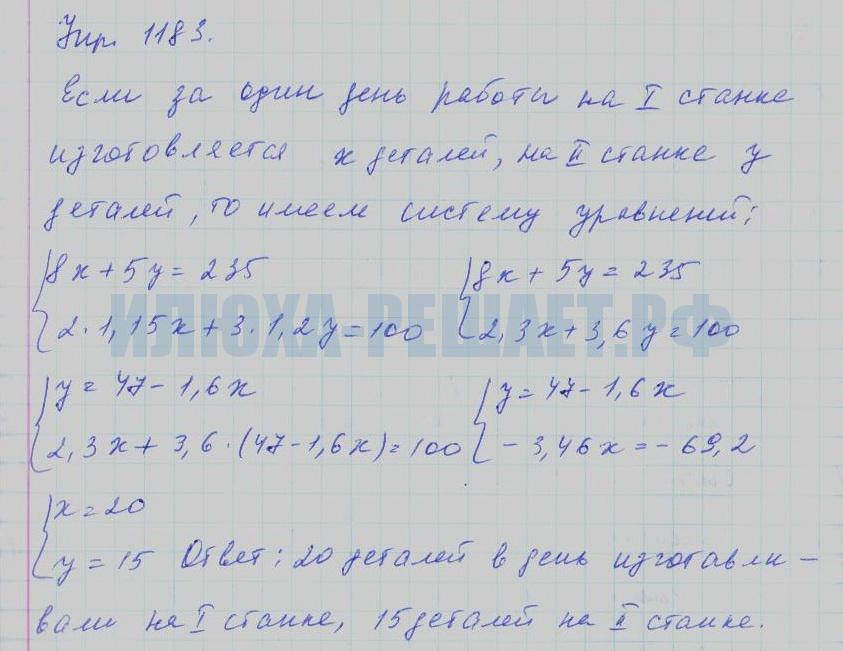 Упр. 1183.
Если за один день работы на I станке
изготовляется x деталей, на II станке y
деталей, то имеем систему уравнений:
8x + 5y = 235
8x + 5y = 235
2·1,15x + 3·1,2y = 100
2,3x + 3,6y = 100
ИЛЮХА-РЕШАЕТ.РФ
y = 47 - 1,6x
y = 47 - 1,6x
2,3x + 3,6·(47 - 1,6x) = 100
- 3,46x = - 69,2
x = 20
y = 15 Ответ: 20 деталей в день изготавли-
вали на I станке, 15 деталей на II станке.